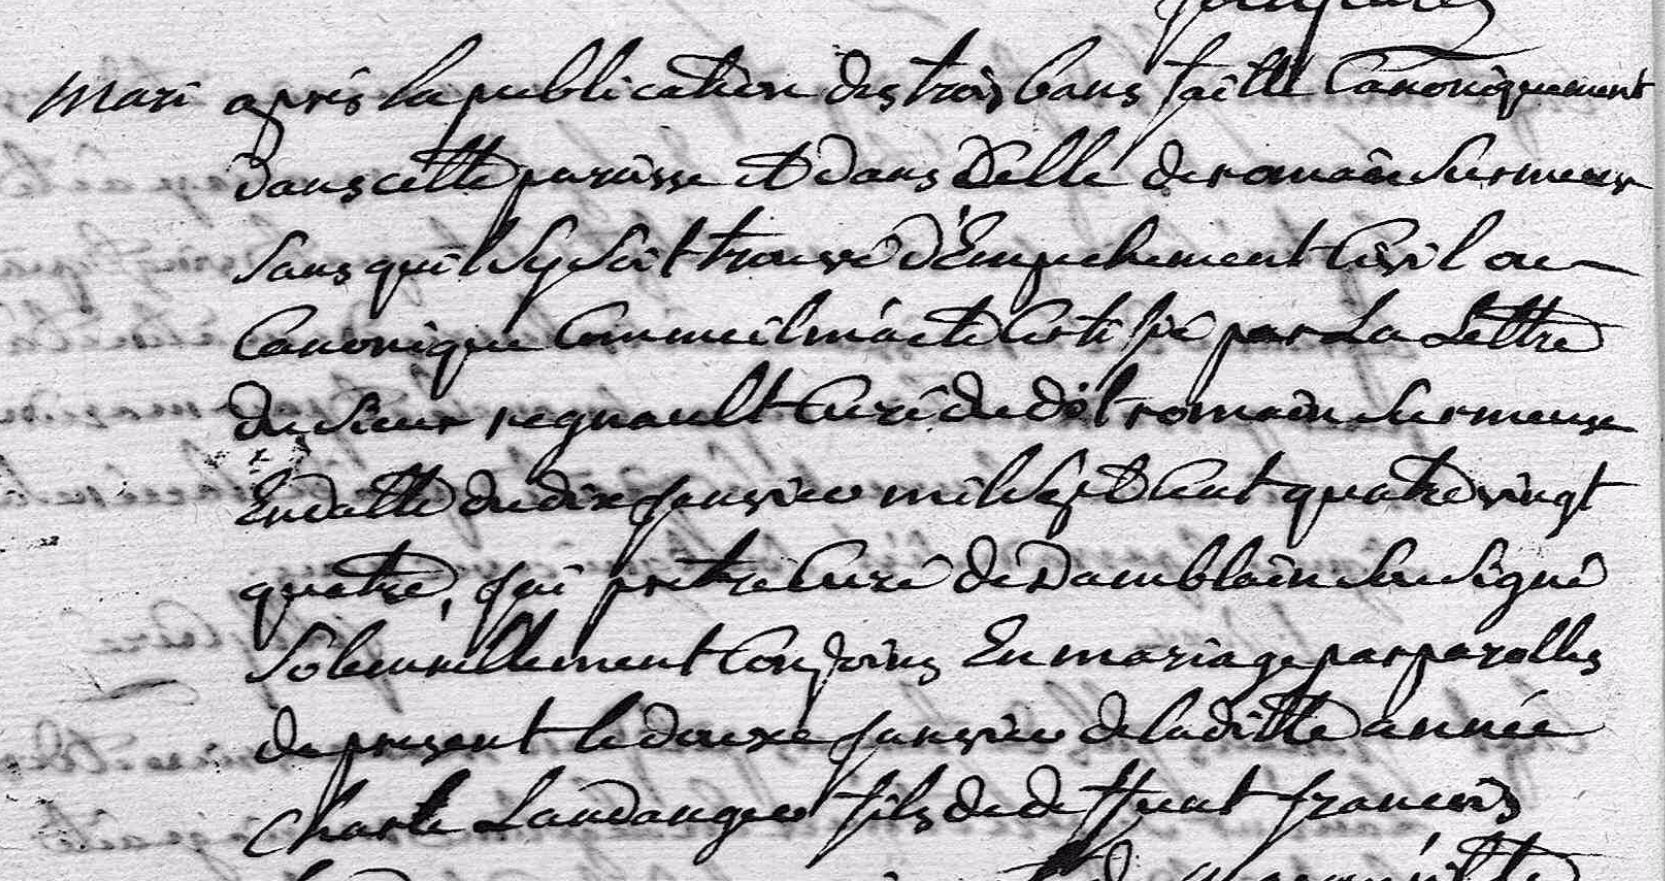 mari après la publication des trois bans faitte Canoniquement
dans cette paroisse et dans Celle de romain Sur meuse
Sans quil Sy Soit trouvé d'Empechement Civil ou
Canonique Comme il m'a eté Certifié par La Lettre
du Sieur regnault Curé du dit romain Sur meuse
En datte du dix janvier mil Sept Cent quatre vingt
quatre, j'ai prêtre Curé de Damblain Sousigné
Solemnellement Conjoins En mariage par parolles
de present le douze janvier de laditte année
Charle Landanger fils de deffunt francois